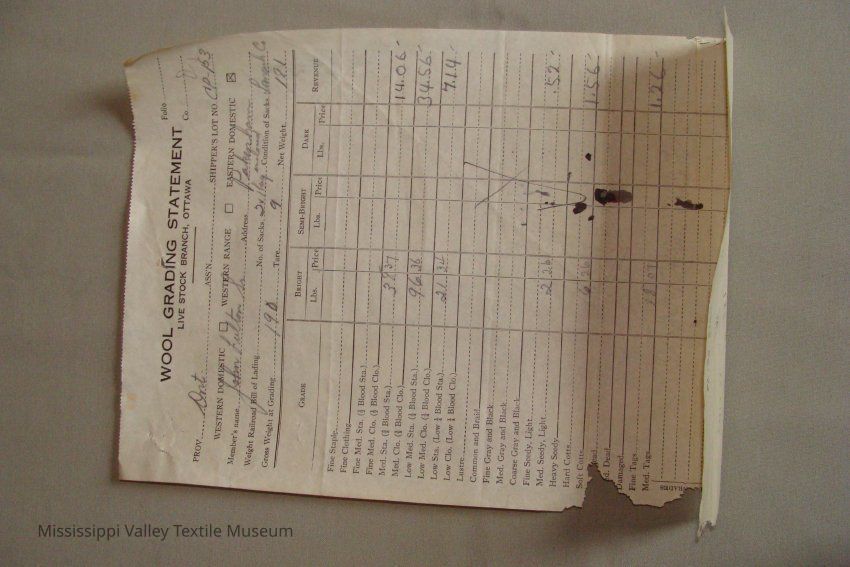 Folio
WOOL GRADING STATEMENT
Co.
LIVE STOCK BRANCH, OTTAWA
PROV. Ont ASS'N. SHIPPER'S LOT NO
WESTERN DOMESTIC WESTERN RANGE EASTERN DOMESTIC
Member's name John Fulton Address
Weight Railroad Bill of Lading No. of Sacks Condition of Sacks
Gross Weight at Grading 190 Tare 9 Net Weight 181
GRADE BRIGHT SEMI-BRIGHT DARK REVENUE
Lbs. Price Lbs. Price Lbs. Price
Fine Staple
Fine Clothing
Fine Med. Sta. (½ Blood Sta.)
Fine Med. Clo. (½ Blood Clo.)
Med. Sta. Blood Sta.) 38 37 14.06
Med. Clo. Blood Clo.)
Low Med. Sta. (¼ Blood Sta.) 96 36 34.56
Low Med. Clo. (¼ Blood Clo.)
Low Sta. (Low ¼ Blood Sta.) 21 34 7.14
Low Clo. (Low ¼ Blood Clo.)
Lustre
Common and Braid
Fine Gray and Black
Med. Gray and Black
Coarse Gray and Black
Fine Seedy, Light
Med. Seedy, Light
Heavy Seedy 2 26 .52
Hard Cotts
Soft Cotts 6 26 1.56
Dead
Damaged
Fine Tags
Med. Tags 18 07 1.26
Mississippi Valley Textile Museum